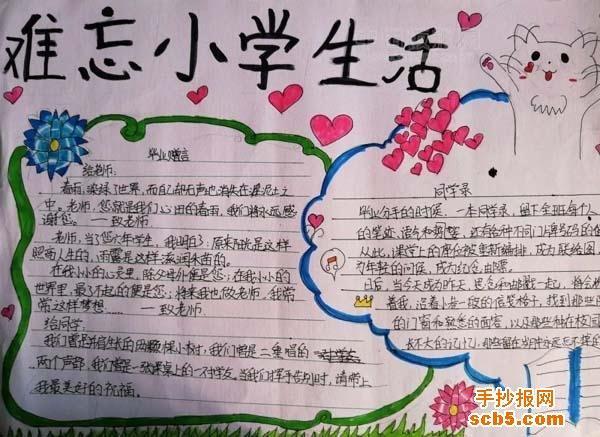 难忘小学生活
毕业赠言
给老师:
春雨,染绿了世界,而自己却无声地消失在泥土之
中。老师,您就是我们心田的春雨,我们将永远感
谢您。 — 致老师
老师,当了您六年学生,我明白了:原来阳光是这样
照耀人生的,雨露是这样滋润木苗的。
在我小小的心灵里,除父母外便是您;在我小小的
世界里,最了不起的便是您;将来我也做老师,我常
常这样梦想…… — 致老师
给同学:
我们曾是并肩生长的两颗保小树,我们曾是二重唱的
两个声部,我们曾是一张课桌上的一对学友。当我们挥手告别时,请带上
我最美好的祝福。
同学录
毕业分手的时候,一本同学录,留下全班每个人
的笔迹、语气和剪影,还有不同门牌号码的
从此,课堂上的座位被重新编排,成为联络图
为年轻的问候,成为红色邮票。
日后,当今天成为昨天,思念和邮戳一起,将会
着我,沿着小巷一般的信笺格子,找到那
的门窗和熟悉的面容,以及那些种在校园
长大的记忆,那些留在
手抄报网
scb5.com